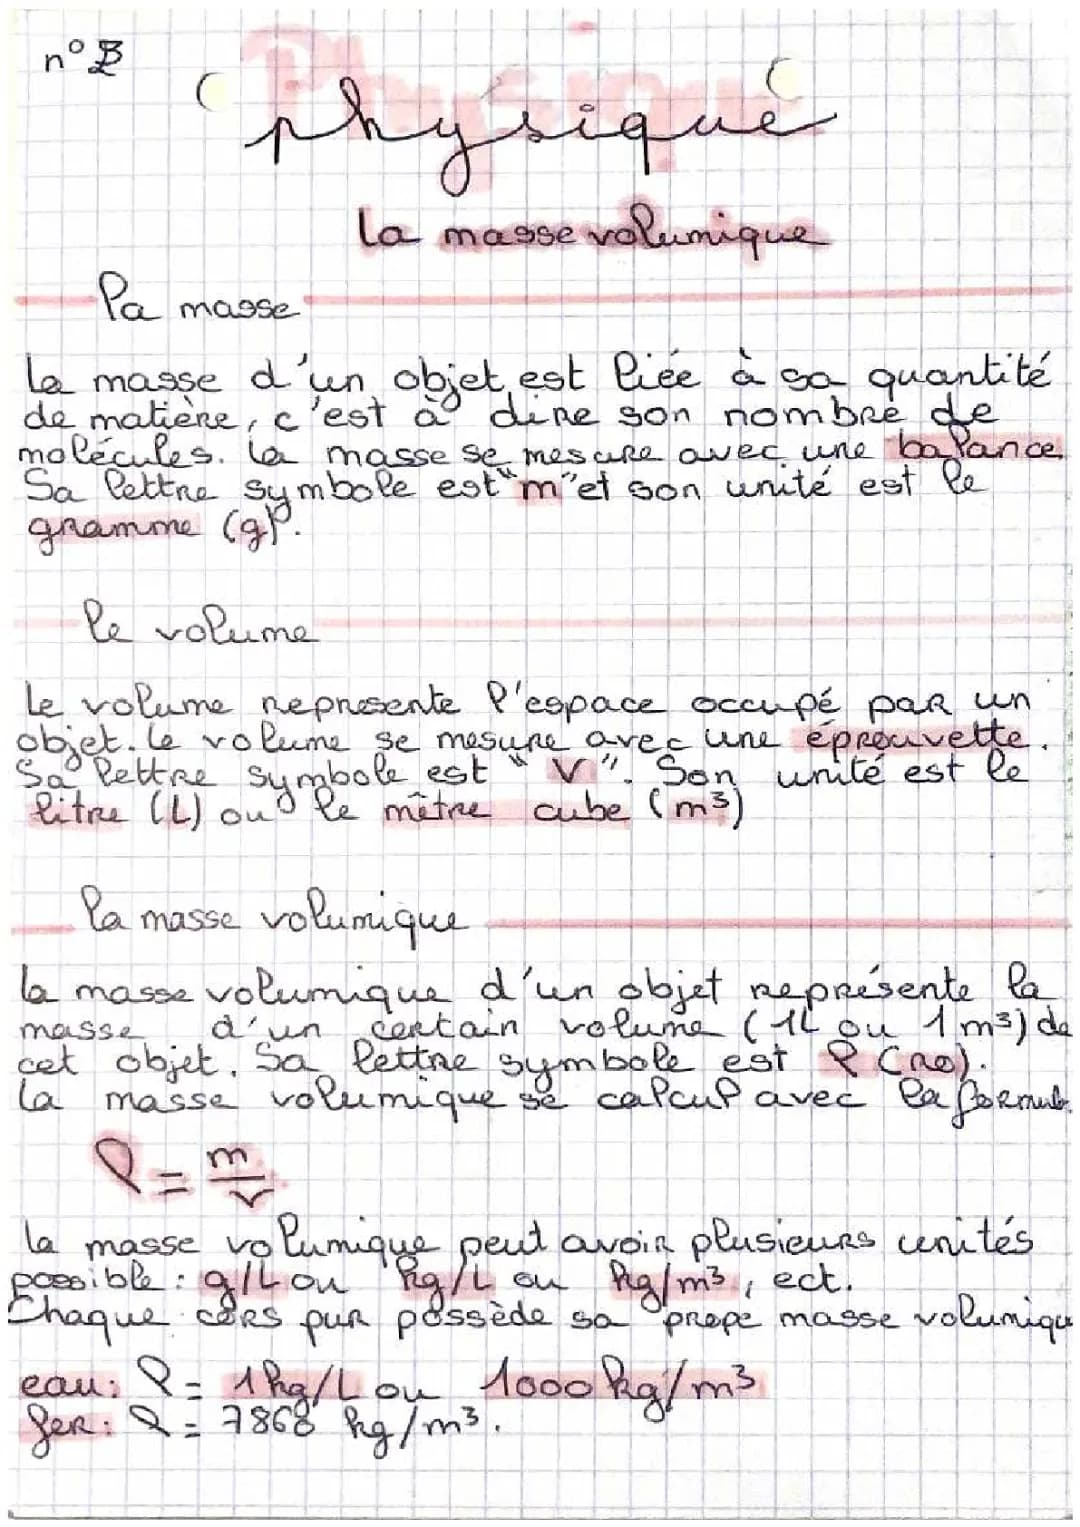 n° B
physique
la masse volumique
la masse
La masse d'un objet est liée à sa quantité
de matière, c'est à dire son nombre de
molécules. La masse se mesure avec une balance
Sa lettre symbole est "m" et son unité est le
gramme (g).
le volume
Le volume represente l'espace occupé par un
objet. Le volume se mesure avec une éprouvette.
Sa lettre symbole est "V". Son unité est le
litre (L) ou le mètre cube (m³)
la masse volumique
la masse volumique d'un objet représente la
masse d'un certain volume (1L ou 1m³) de
cet objet. Sa lettre symbole est ρ (ro).
La masse volumique se calcul avec la formule
ρ = m/v
la masse volumique peut avoir plusieurs unités
possible : g/L ou kg/L ou kg/m³, ect.
Chaque cors pur possède sa prope masse volumiqu
eau : ρ = 1kg/L ou 1000 kg/m³
fer : ρ = 7868 kg/m³.